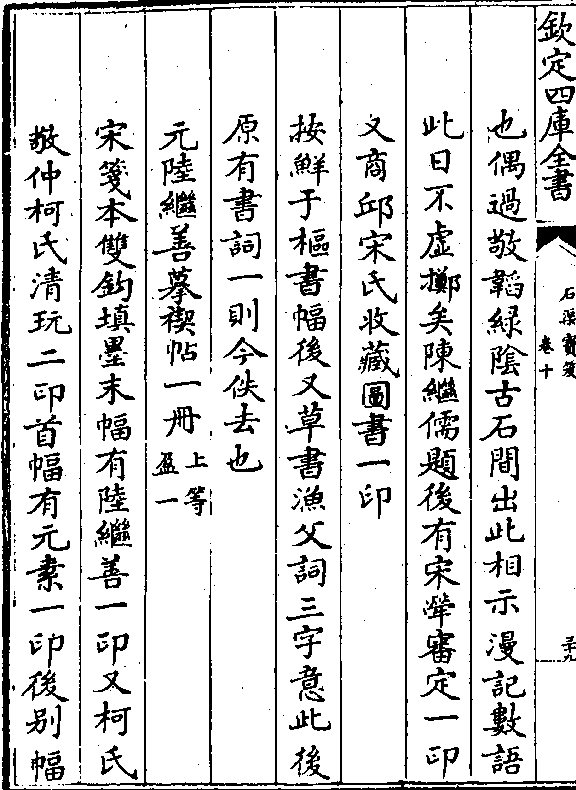 欽定四庫全書
石渠寶笈
卷十
三十九
也偶過敬韜綠陰古石間出此相示漫記數語
此日不虛擲矣陳繼儒題後有宋犖審定一印
又商邱宋氏收藏圖書一印
按鮮于樞書幅後又草書漁父詞三字意此後
原有書詞一則今佚去也
元陸繼善摹禊帖一冊上等盈一
宋箋本雙鈎填墨末幅有陸繼善一印又柯氏
敬仲柯氏清玩二印首幅有元素一印後别幅